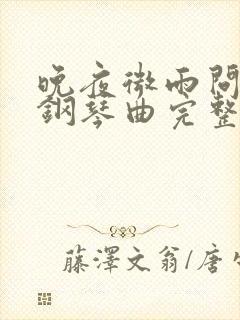 晚夜微雨問
鋼琴曲完整
藤澤文翁/唐